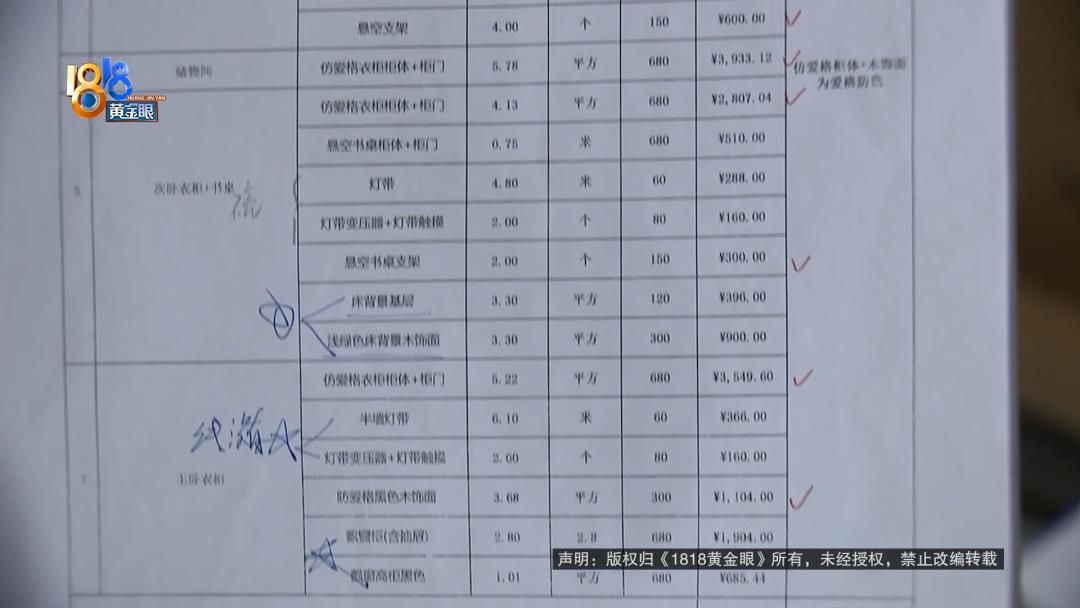 悬空支架 4.00 个 150 ¥600.00
储物间 仿爱格衣柜柜体+柜门 5.78 平方 680 ¥3,933.12 仿爱格柜体+木饰面
为爱格防色
1818
HUANG JIN YAN
黄金眼
仿爱格衣柜柜体+柜门 4.13 平方 680 ¥2,807.04
悬空书桌柜体+柜门 0.75 米 680 ¥510.00
次卧衣柜+书桌 灯带 4.80 米 60 ¥288.00
灯带变压器+灯带触摸 2.00 个 80 ¥160.00
悬空书桌支架 2.00 个 150 ¥300.00
床背景基层 3.30 平方 120 ¥396.00
浅绿色床背景木饰面 3.30 平方 300 ¥900.00
仿爱格衣柜柜体+柜门 5.22 平方 680 ¥3,549.60
半墙灯带 6.10 米 60 ¥366.00
7 主卧衣柜 灯带变压器+灯带触摸 2.00 个 80 ¥160.00
防爱格黑色木饰面 3.68 平方 300 ¥1,104.00
飘窗柜(含抽屉) 2.80 2.8 680 ¥1,904.00
飘窗高柜黑色 1.01 平方 680 ¥685.44
声明：版权归《1818黄金眼》所有，未经授权，禁止改编转载